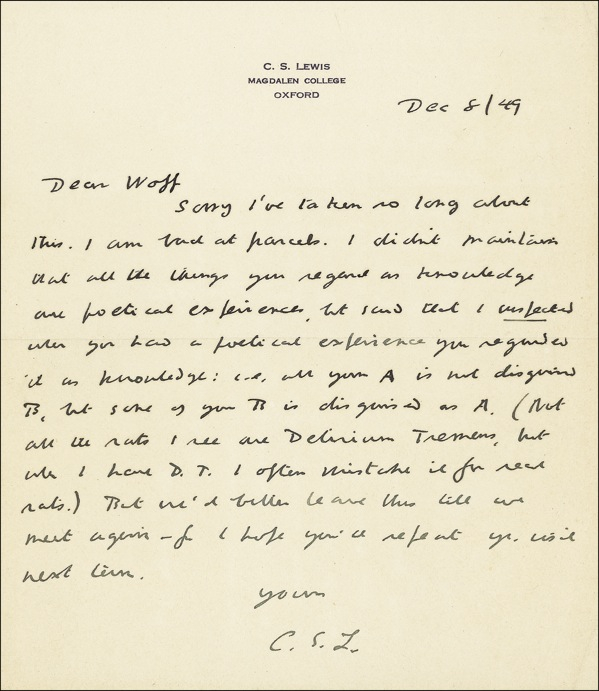 C. S. LEWIS
MAGDALEN COLLEGE
OXFORD
Dec 8/49
Dear Woff
Sorry I've taken so long about
this. I am bad at parcels. I didn't maintain
that all the things you regard as knowledge
are poetical experiences, but said that I suspected
when you had a poetical experience you regarded
it as knowledge: i.e. all your A is not disguised
B, but some of your B is disguised as A. (Not
all the rats I see are Delirium Tremens, but
when I have D.T. I often mistake it for real
rats.) But we'd better leave this till we
meet again – for I hope you'll repeat yr. visit
next term.
yours
C. S. L.